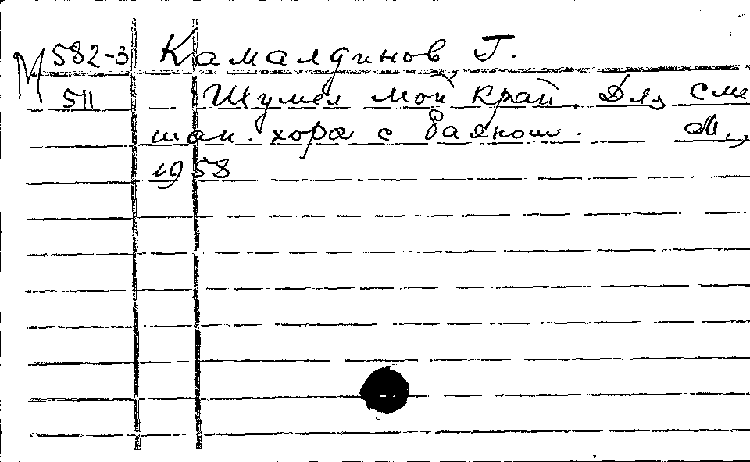 М 582-3 Камалдинов, Г.
511 Шумел мой край. Для сме
шан. хора с баяном. М.,
1958